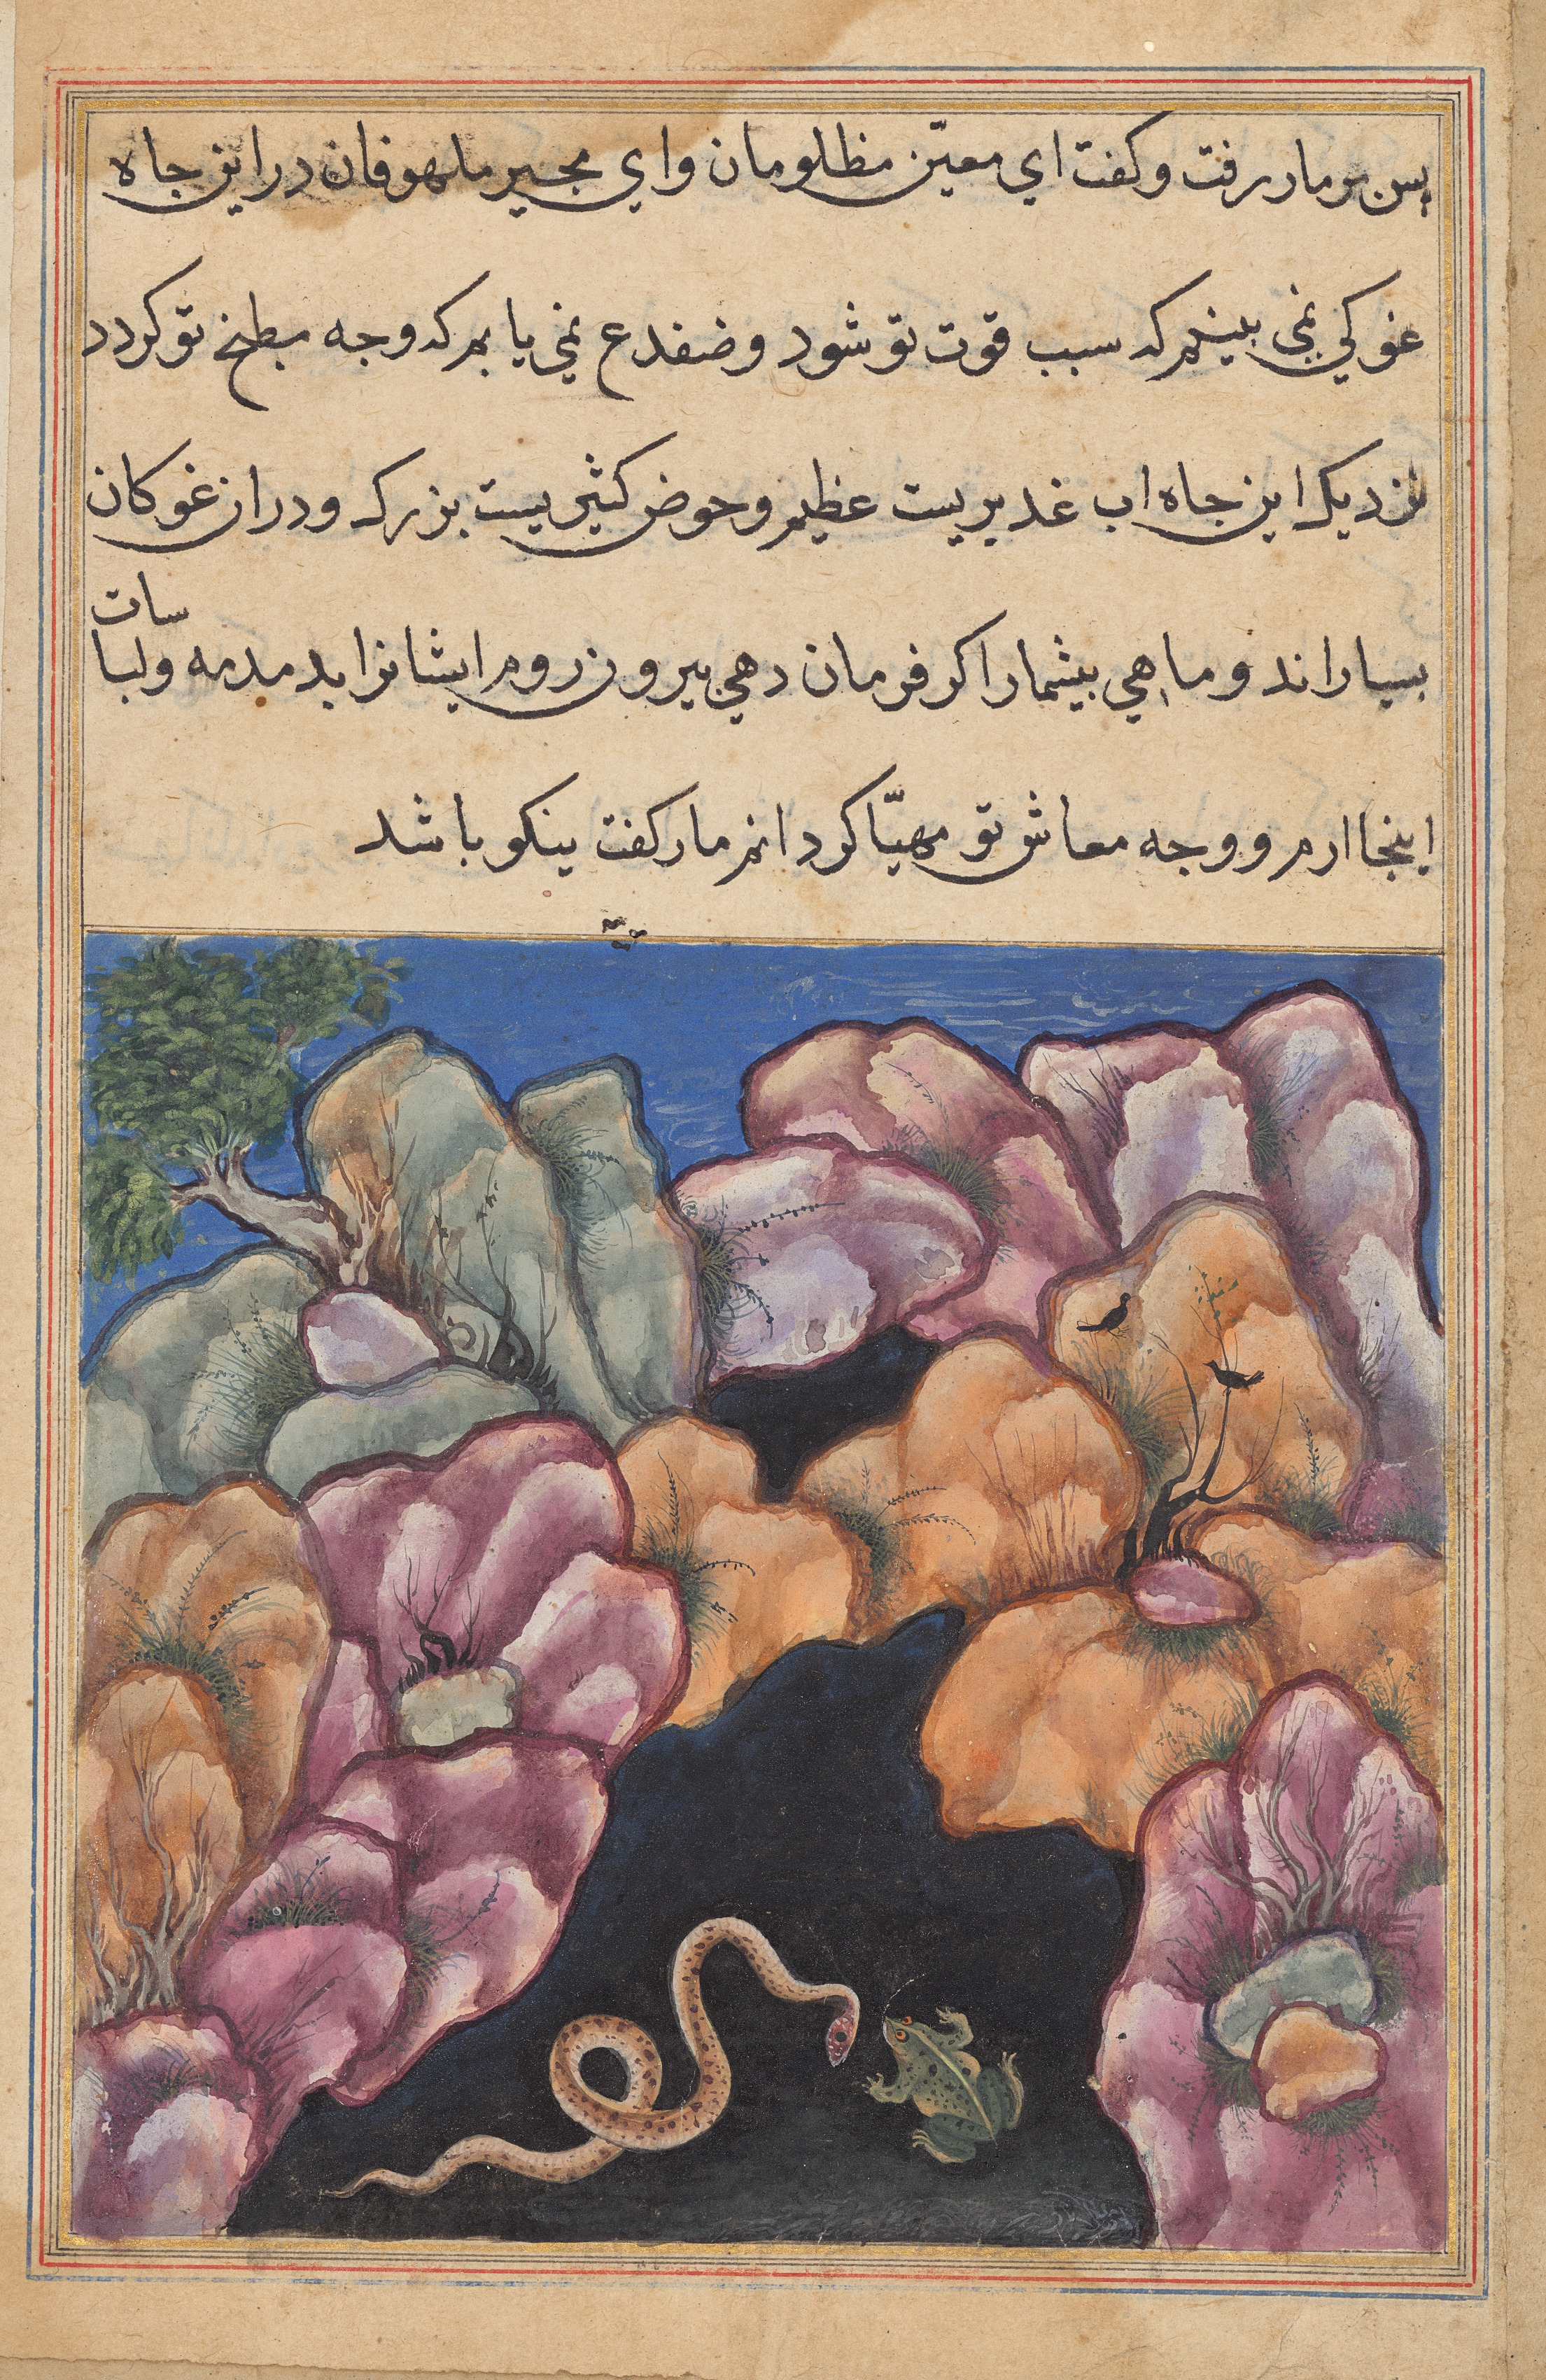 پس بر مار رفت و کفت ای معیّن مظلومان و ای مجیر ملهوفان در این جاه
غوکی نمی بینم که سبب قوت تو شود و ضفدع نمی یابم که وجه مطبخ تو کردد
نزدیک این جاه اب غدیریست عظیم و حوض کثیریست بزرک و دران غوکان
بسیاراند و ماهی بیشمار اکر فرمان دهی بیرون روم ایشانرا بدمدمه و لباسات
اینجا ارم و وجه معاش تو مهیّا کردانم مار کفت نیکو باشد